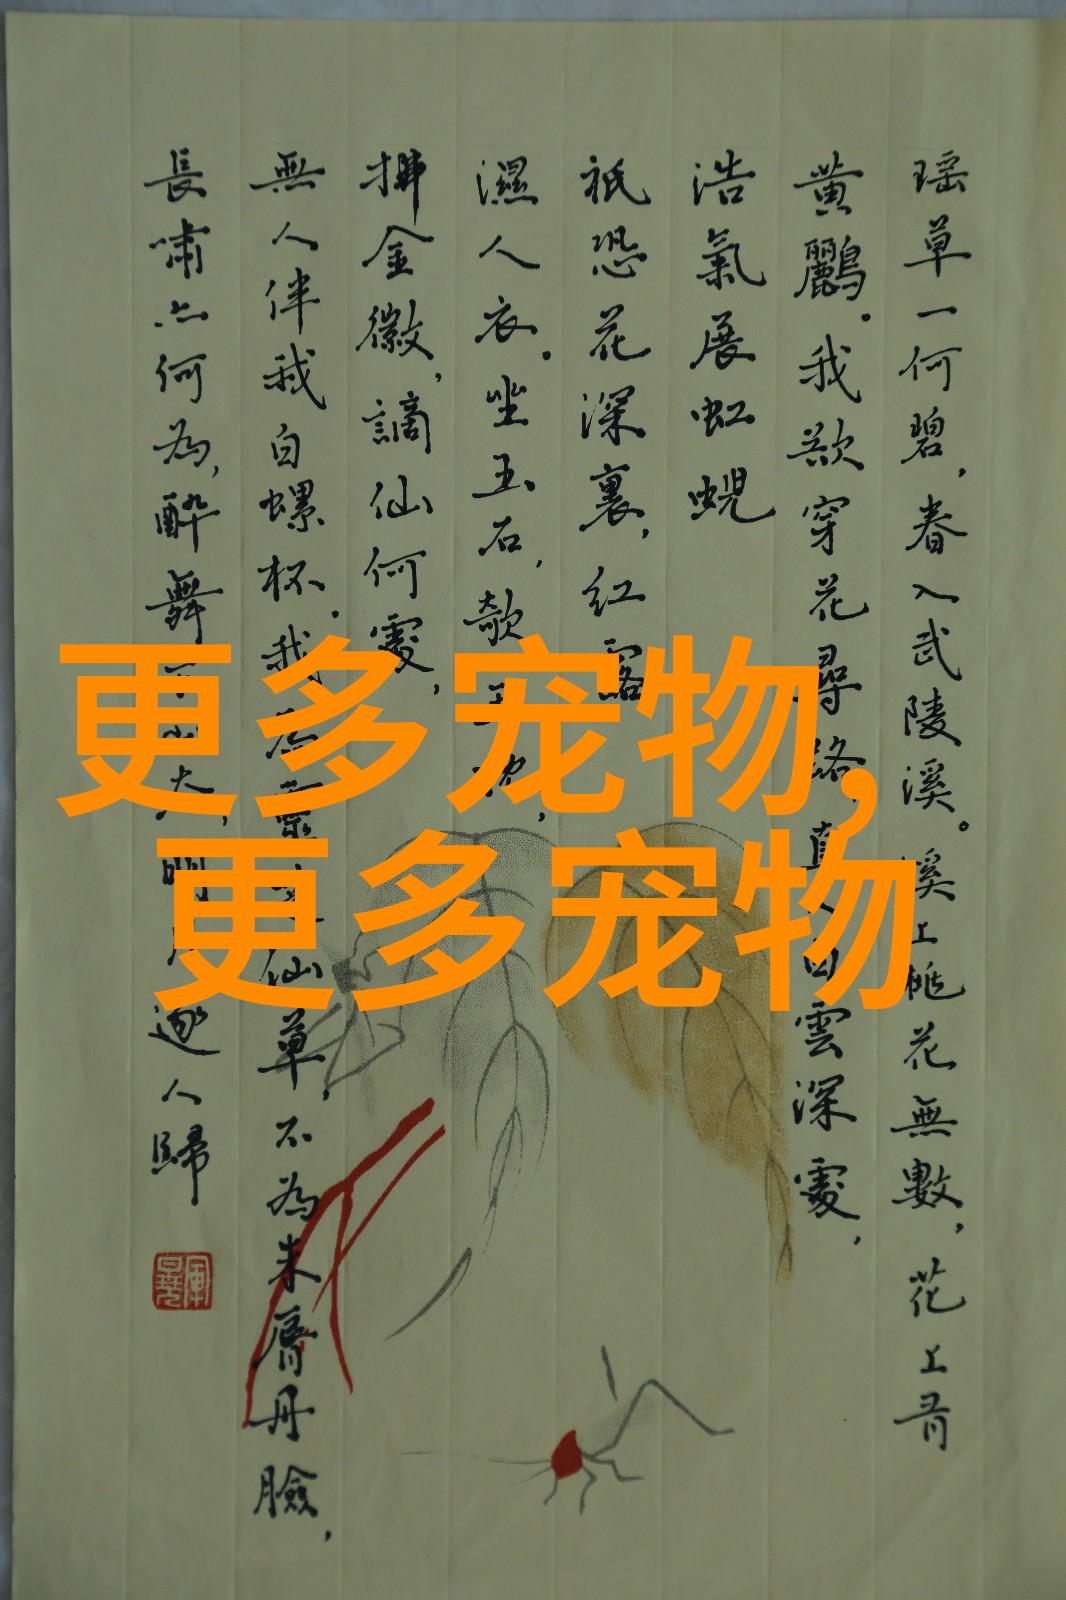 瑶草一何碧，春入武陵溪。溪上桃花無數，花上有
黄鸝。我欲穿花尋路，直入白雲深處，
浩氣展虹蜺
祇恐花深裏，紅露
濕人衣。坐玉石，欹玉枕，
拂金徽，謫仙何處，
無人伴我白螺杯。我為靈芝仙草，不為朱唇丹臉，
長嘯亦何為，醉舞下山去，明月逐人歸
更多宠物,
更多宠物